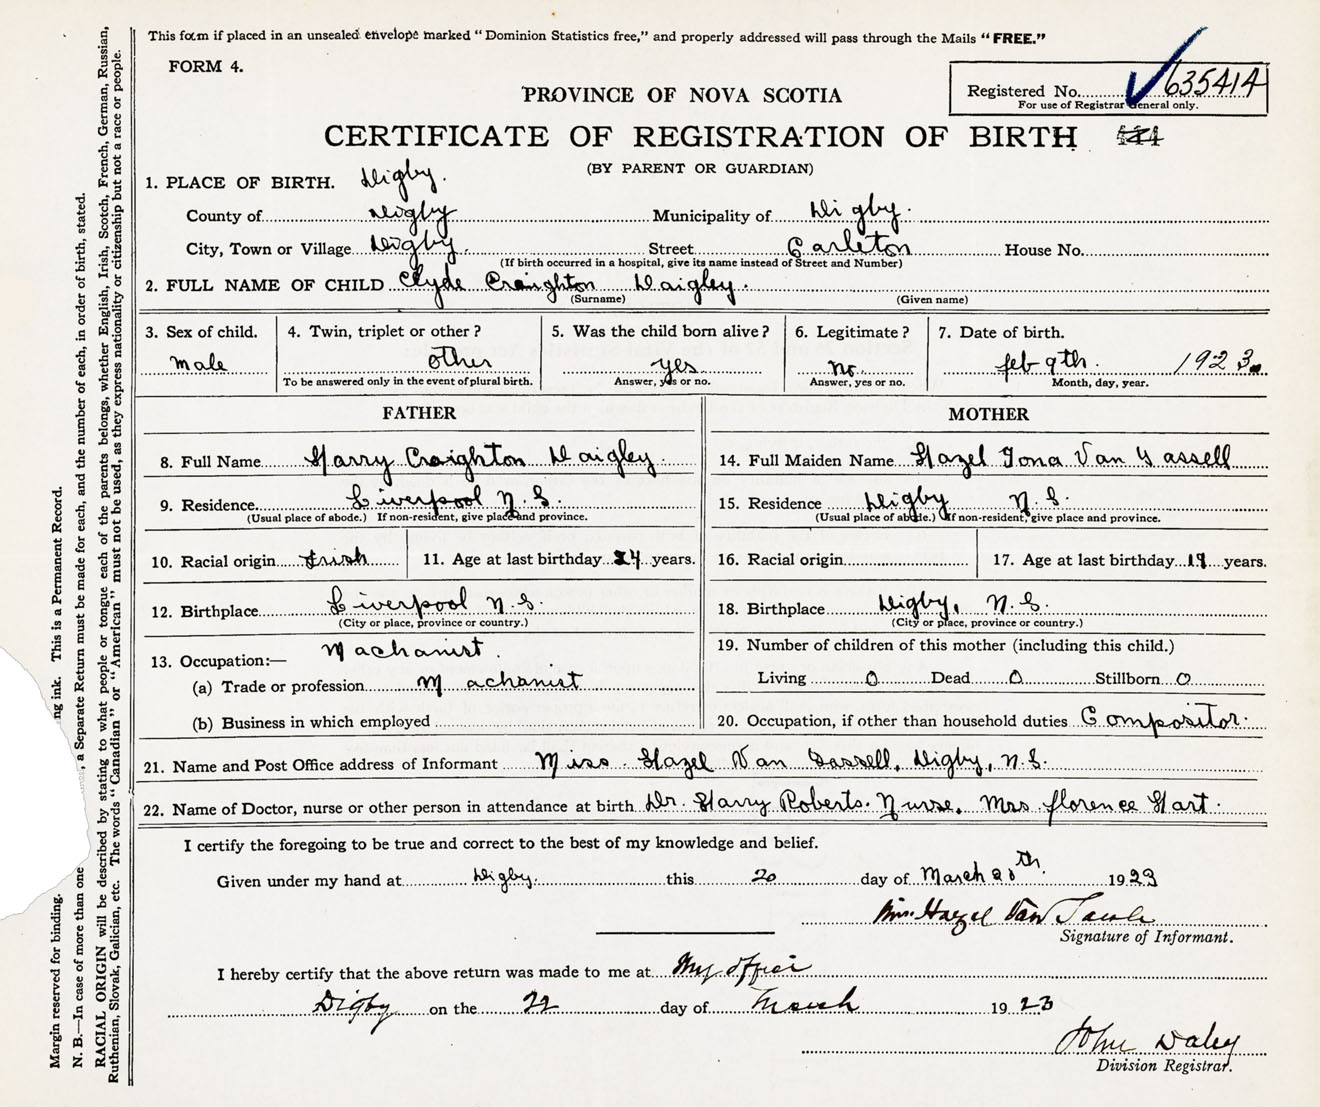 This form if placed in an unsealed envelope marked "Dominion Statistics free," and properly addressed will pass through the Mails "FREE."
FORM 4.
Registered No. 635414
For use of Registrar General only.
PROVINCE OF NOVA SCOTIA
CERTIFICATE OF REGISTRATION OF BIRTH
(BY PARENT OR GUARDIAN)
1. PLACE OF BIRTH. Digby.
County of Digby Municipality of Digby.
City, Town or Village Digby. Street Carleton House No.
(If birth occurred in a hospital, give its name instead of Street and Number)
2. FULL NAME OF CHILD Clyde Craighton Daigley.
(Surname) (Given name)
3. Sex of child. 4. Twin, triplet or other? 5. Was the child born alive? 6. Legitimate? 7. Date of birth.
male other yes no. feb 9th. 1923.
To be answered only in the event of plural birth. Answer, yes or no. Answer, yes or no. Month, day, year.
FATHER MOTHER
8. Full Name Harry Craighton Daigley. 14. Full Maiden Name Hazel Iona Van Tassell
9. Residence Liverpool N.S. 15. Residence Digby N.S.
(Usual place of abode.) If non-resident, give place and province. (Usual place of abode.) If non-resident, give place and province.
10. Racial origin Irish 11. Age at last birthday 24 years. 16. Racial origin 17. Age at last birthday 19 years.
12. Birthplace Liverpool N.S. 18. Birthplace Digby, N.S.
(City or place, province or country.) (City or place, province or country.)
13. Occupation:— Machanist. 19. Number of children of this mother (including this child.)
(a) Trade or profession Machanist Living 0 Dead 0 Stillborn 0
(b) Business in which employed 20. Occupation, if other than household duties Compositor.
21. Name and Post Office address of Informant Miss. Hazel Van Tassell, Digby, N.S.
22. Name of Doctor, nurse or other person in attendance at birth Dr. Harry Roberts. Nurse. Mrs florence Hart.
I certify the foregoing to be true and correct to the best of my knowledge and belief.
Given under my hand at Digby. this 20 day of March 20th. 1923
Hazel Van
Signature of Informant.
I hereby certify that the above return was made to me at My office
Digby on the 22 day of March 1923
John Daley
Division Registrar.
Margin reserved for binding. ng ink. This is a Permanent Record.
N. B.—In case of more than one , a Separate Return must be made for each, and the number of each, in order of birth, stated.
RACIAL ORIGIN will be described by stating to what people or tongue each of the parents belongs, whether English, Irish, Scotch, French, German, Russian,
Ruthenian, Slovak, Galician, etc. The words "Canadian" or "American" must not be used, as they express nationality or citizenship but not a race or people.